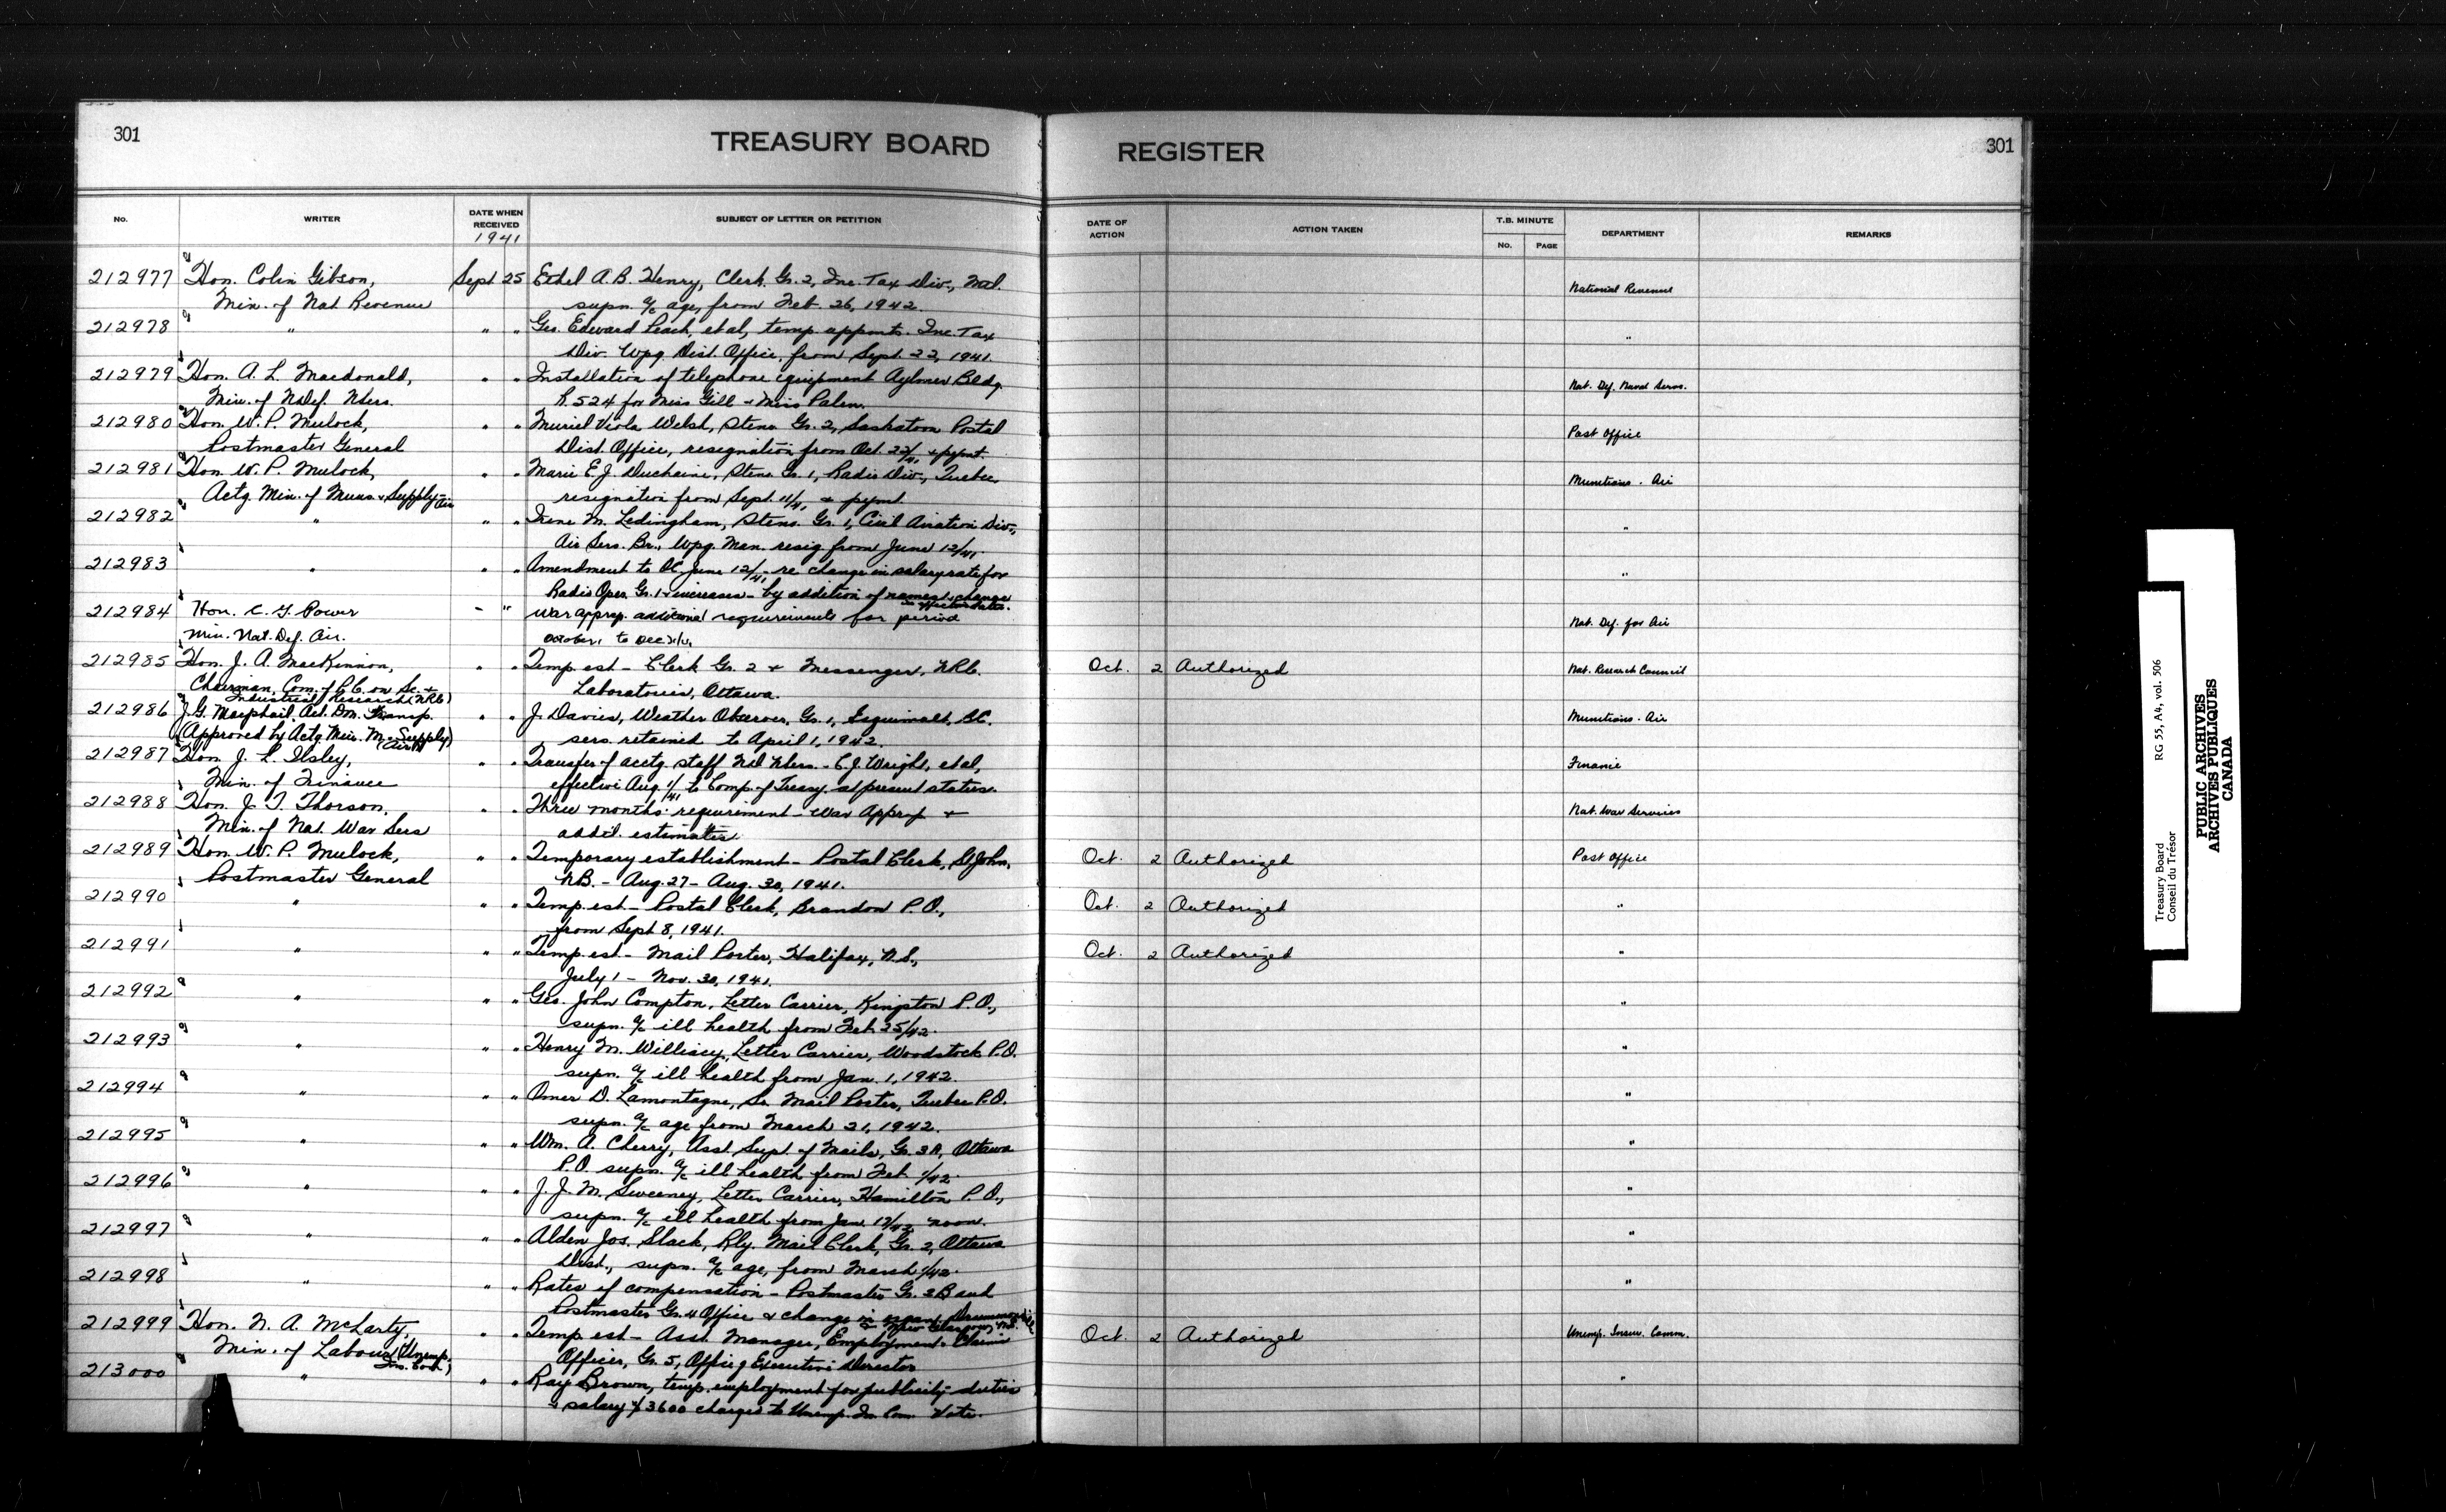 301
TREASURY BOARD
REGISTER
301
No.
WRITER
DATE WHEN RECEIVED
1941
SUBJECT OF LETTER OR PETITION
DATE OF ACTION
ACTION TAKEN
T.B. MINUTE
No.
PAGE
DEPARTMENT
REMARKS
212977 Hon. Colin Gibson, Sept 25 Ethel A. B. Henry, Clerk, Gr. 2, Inc. Tax Div., National Revenue
Min. of Nat Revenue supn. a/c age, from Feb. 26, 1942.
212978 " " " Geo. Edward Peach, et al, temp. appmts. Inc. Tax "
Div. Wpg. Dist. Office, from Sept. 22, 1941.
212979 Hon. A. L. Macdonald, " " Installation of telephone equipment Aylmer Bldg. Nat. Def. Naval Servs.
Min. of N Def. NSers. R. 524 for Miss Gill & Miss Palen.
212980 Hon. W. P. Mulock, " " Muriel Viola Welsh, Steno Gr. 2, Saskatoon Postal Post Office
Postmaster General Dist. Office, resignation from Oct. 22/41 & pymt.
212981 Hon W. P. Mulock, " " Marie E. J. Ducheine, Steno Gr. 1, Radio Div., Quebec, Munitions - Air
Actg. Min. of Muns & Supply - Air resignation from Sept. 11/41 & pymt.
212982 " " " Irene M. Ledingham, Steno. Gr. 1, Civil Aviation Div., "
Air Sers. Br., Wpg. Man. resig from June 12/41.
212983 " " " Amendment to OC June 12/41 - re change in salary rate for "
Radio Oper. Gr. 1 & increases - by addition of names & change
212984 Hon. C. G. Power " " War approp. additional requirements for period Nat. Def. for Air
Min. Nat. Def. Air. October 1 to Dec
212985 Hon. J. A. MacKinnon, " " Temp. est - Clerk Gr. 2 & Messenger, NRC. Oct. 2 Authorized Nat. Research Council
Chairman, Com. of P.C. on Sc. & Laboratories, Ottawa.
Industrial Research (NRC)
212986 J. G. Macphail, Act. Dm. Transp. " " J. Davies, Weather Observer, Gr. 1, Esquimalt, BC. Munitions - Air
(Approved by Actg Min. M & Supply) (Air) sers. retained to April 1, 1942.
212987 Hon. J. L. Ilsley, " " Transfer of acctg. staff - C. J. Wright, et al, Finance
Min. of Finance effective Aug. 1/41 to Comp. of Treasy. at present status.
212988 Hon. J. T. Thorson, " " Three months' requirement - War Approp & Nat. War Services
Min. of Nat. War Sers addit. estimates.
212989 Hon. W. P. Mulock, " " Temporary establishment - Postal Clerk, St John, Oct. 2 Authorized Post Office
Postmaster General NB. - Aug. 27 - Aug. 30, 1941.
212990 " " " Temp. est - Postal Clerk, Brandon P.O., Oct. 2 Authorized "
from Sept 8, 1941.
212991 " " " Temp. est - Mail Porter, Halifax, N.S., Oct. 2 Authorized "
July 1 - Nov. 30, 1941.
212992 " " " Geo. John Compton, Letter Carrier, Kingston P.O., "
supn. a/c ill health from Feb. 25/42.
212993 " " " Henry M. Letter Carrier, Woodstock P.O. "
supn. a/c ill health from Jan. 1, 1942.
212994 " " " Omer D. Lamontagne, Sr. Mail Porter, Quebec P.O. "
supn. a/c age from March 21, 1942.
212995 " " " Wm. A. Cherry, Asst. Supt. of Mails, Gr. 3A, Ottawa "
P.O. supn. a/c ill health from Feb. 1/42.
212996 " " " J. J. M. Sweeney, Letter Carrier, Hamilton P.O., "
supn. a/c ill health from Jan. 12/42 noon.
212997 " " " Alden Jos. Slack, Rly. Mail Clerk, Gr. 2, Ottawa "
Dist., supn. a/c age, from March 1/42.
212998 " " " Rates of compensation - Postmaster Gr. 3B and "
Postmaster Gr. 4 Office & change
212999 Hon. N. A. McLarty, " " Temp. est - Asst. Manager, Employment & Claims Oct. 2 Authorized Unemp. Insur. Comm.
Min. of Labour (Unemp. Ins. Com.) Officer, Gr. 5, Office of Executive Director
213000 " " " Ray Brown, temp. employment for publicity duties "
salary $3600 charged to Unemp. In. Com Vote.
Treasury Board RG 55, A4, vol. 506
Conseil du Trésor
PUBLIC ARCHIVES
ARCHIVES PUBLIQUES
CANADA